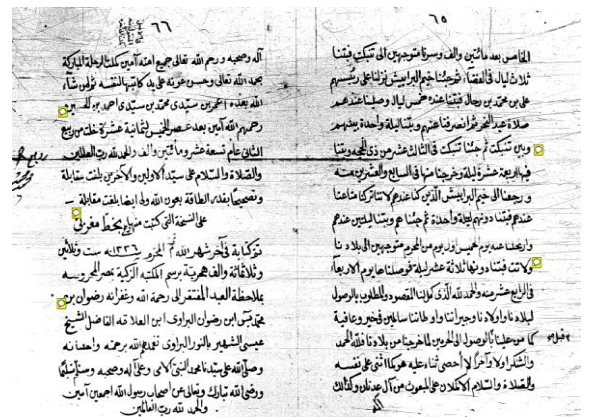 ٦٥
الخامس بعد مائتين والف وسرنا متوجهين الى تنبكت فبتنا
ثلاث ليال في الفقا، ثم جئنا خيم البرابيش نزلنا على رئيسهم
على بن محمد بن رحال فبتنا عنده خمس ليال وصلينا عندهم
صلاة عيد النحر ثم انصرفنا عنهم وبتنا ليلة واحدة بينهم
وبين تنبكت ثم جئنا تنبكت في الثالث عشر من ذي الحجة وبتنا
فيها اربعة عشر ليلة وخرجنا منها في السابع والعشرين منه
ورجعنا الى خيم البرابيش الذين كنا عندهم لاننا تركنا متاعنا
عندهم فبتنا دونهم ليلة واحدة ثم جئناهم وبتنا ليلتين عندهم
وارتحلنا عنه يوم الخميس اول يوم من المحرم متوجهين الى بلادنا
ولاتت فبتنا دونها ثلاثة عشر ليلة فوصلناها يوم الاربعاء
في الرابع عشر منه والحمد لله الذي كمل لنا القصود والمطلوب بالوصول
لبلادنا واولادنا وجيراننا واوطاننا سالمين في خير وعافية
كما من علينا بالوصول الى الحرمين لما خرجنا من بلادنا فلله الحمد
والشكر اولا وآخرا لا أحصى ثناء عليه هو كما اثنى على نفسه
والصلاة والسلام الاكملان على المبعوث من آل عدنان وكذلك
٦٦
آله وصحبه ورحم الله تعالى جميع امته آمين كملت الرحلة المباركة
بحمد الله تعالى وحسن عونه على يد كاتبها لنفسه ثم لمن شاء
الله بعده محمد بن سيدي احمد بن
رحمهم الله آمين بعد عصر الخميس لثمانية عشرة خلت من ربيع
الثاني عام تسعة عشر ومائتين والف والحمد لله رب العالمين
والصلاة والسلام على سيد الاولين والآخرين بلغت مقابلة
وتصحيحا بقدر الطاقة بعون الله ولي ايضا بلغت مقابلة
على النسخة التي كتبت منها بخط مغربي
تم كتابة في آخر شهر الله المحرم ١٣٣٦ سنة ست وثلاثين
وثلاثمائة والف هجرية برسم المكتبة الزكية بمصر المحروسة
بملاحظة العبد المفتقر الى رحمة الله وغفرانه رضوان بن
محمد بن رضوان البراوي ابن العلامة الفاضل الشيخ
عيسى الشهير بالنور البراوي تغمدهم الله برحمته واحسانه
وصلى الله على سيدنا محمد النبي الامي وعلى آله وصحبه وسلم تسليما
ورضى الله تبارك وتعالى عن اصحاب رسول الله اجمعين آمين
والحمد لله رب العالمين